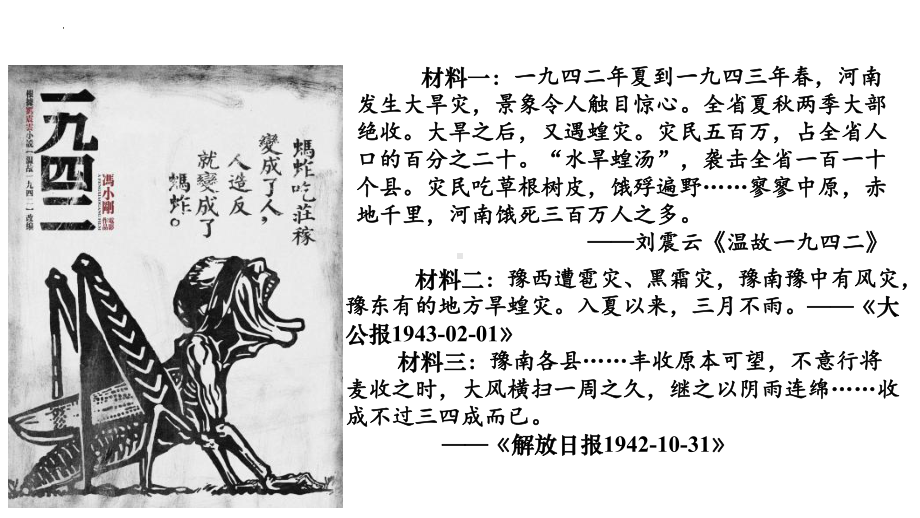 一九四二
根據劉震雲小説《温故一九四二》改編
馮小剛
電影
作品
螞蚱吃莊稼
變成了人,
人造反
就變成了
螞蚱。
材料一：一九四二年夏到一九四三年春，河南
发生大旱灾，景象令人触目惊心。全省夏秋两季大部
绝收。大旱之后，又遇蝗灾。灾民五百万，占全省人
口的百分之二十。“水旱蝗汤”，袭击全省一百一十
个县。灾民吃草根树皮，饿殍遍野……寥寥中原，赤
地千里，河南饿死三百万人之多。
——刘震云《温故一九四二》
材料二：豫西遭雹灾、黑霜灾，豫南豫中有风灾，
豫东有的地方旱蝗灾。入夏以来，三月不雨。——《大
公报1943-02-01》
材料三：豫南各县……丰收原本可望，不意行将
麦收之时，大风横扫一周之久，继之以阴雨连绵……收
成不过三四成而已。
——《解放日报1942-10-31》